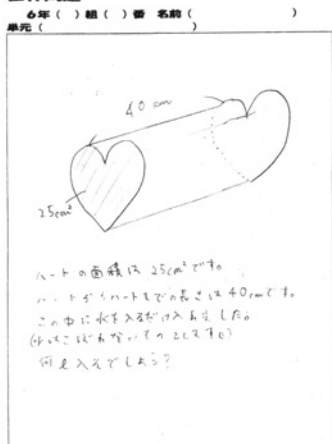 6年( )組( )番 名前( )
単元( )
40cm
25cm²
ハートの面積は25cm²です。
ハートからハートまでの長さは40cmです。
この中に水を入るだけ入れました。
(水はこぼれないものとします。)
何㎤入るでしょう?